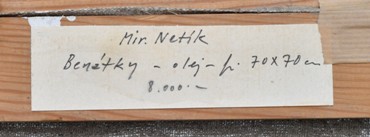 Mir. Netík
Benátky - olej - pl. 70x70 cm
8.000.-